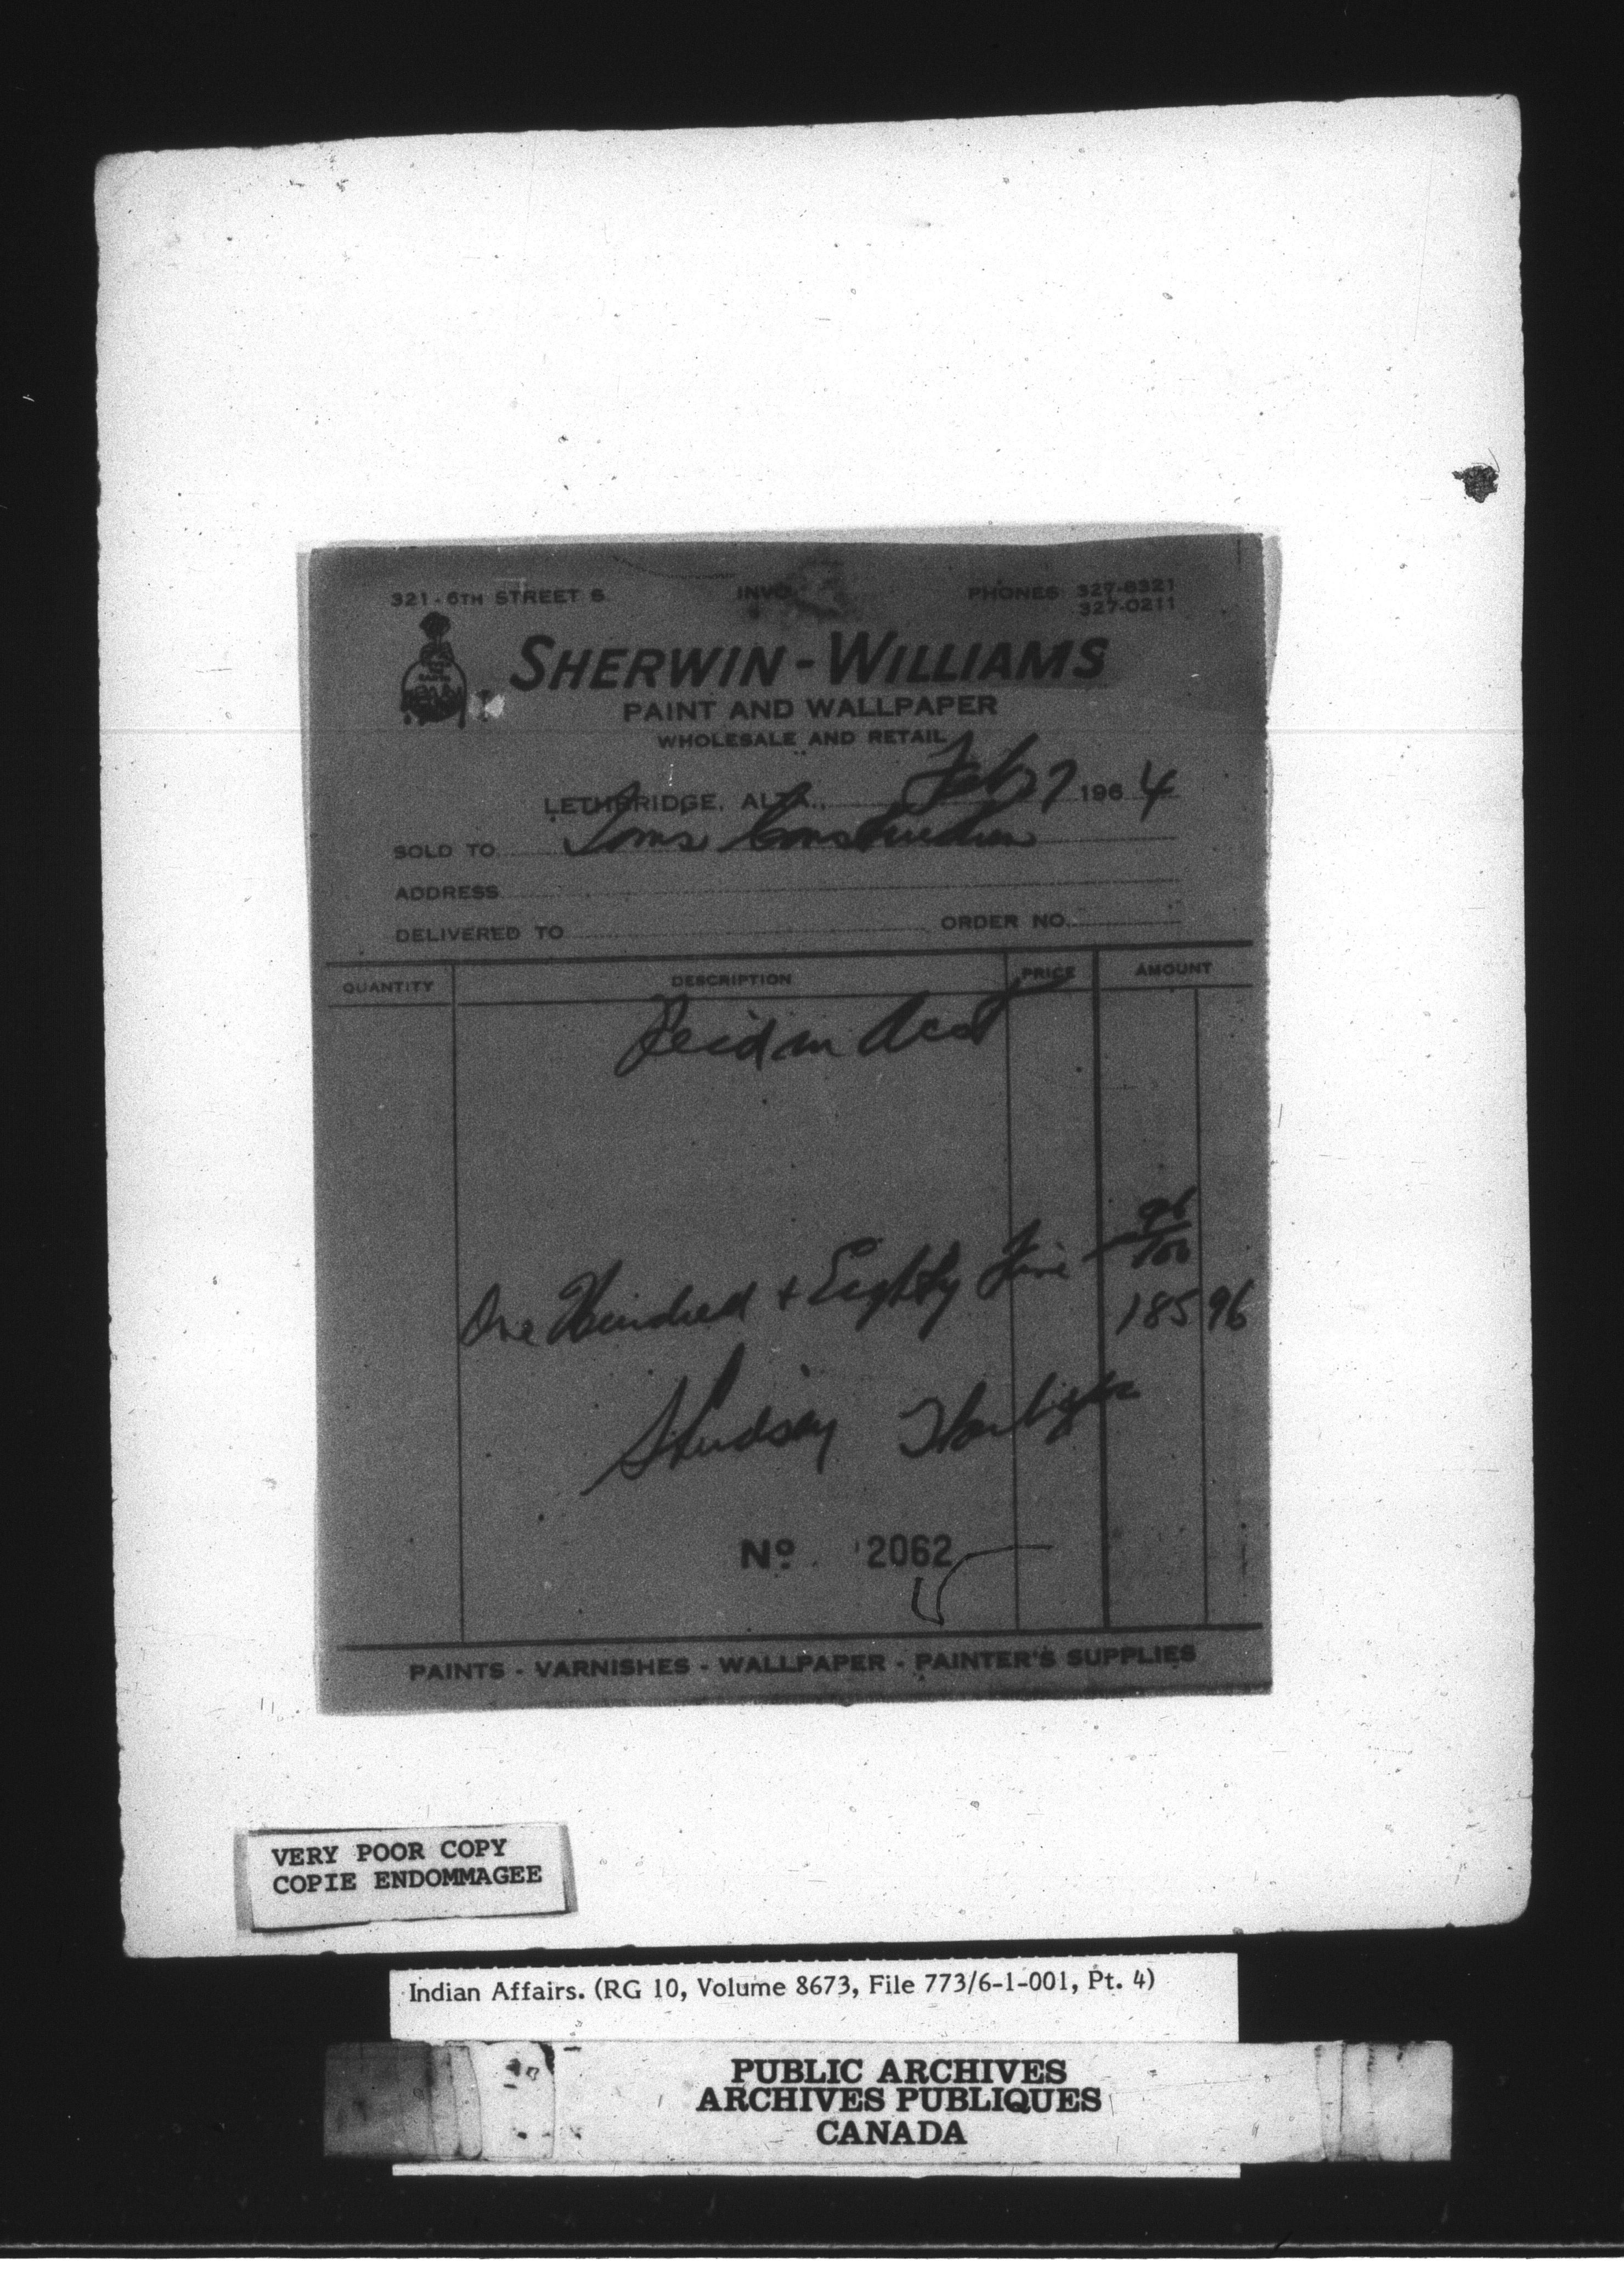 321 - 6TH STREET S. INVO PHONES 327-8321
327-0211
SHERWIN-WILLIAMS
PAINT AND WALLPAPER
WHOLESALE AND RETAIL
LETHBRIDGE, ALTA., Feb 27 1964
SOLD TO Toms Construction
ADDRESS
DELIVERED TO ORDER NO.
QUANTITY DESCRIPTION PRICE AMOUNT
on Acct
One Hundred + Eighty Five 96/100
185 96
Lindsay
No. 2062
PAINTS - VARNISHES - WALLPAPER - PAINTER'S SUPPLIES
VERY POOR COPY
COPIE ENDOMMAGEE
Indian Affairs. (RG 10, Volume 8673, File 773/6-1-001, Pt. 4)
PUBLIC ARCHIVES
ARCHIVES PUBLIQUES
CANADA